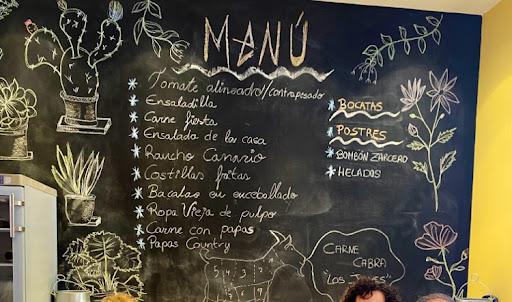 MENÚ
* Tomate alineado//contrapesado
* Ensaladilla
* Carne fiesta
* Ensalada de la casa
* Rancho Canario
* Costillas fritas
* Bacalao ou encebollado
* Ropa Vieja de pulpo
* Carne con papas
* Papas Country
* BOCATAS
* POSTRES
* BOMBÓN ZARCERO
* HELADOS
CARNE
CABRA
"Los
5 4 3 2